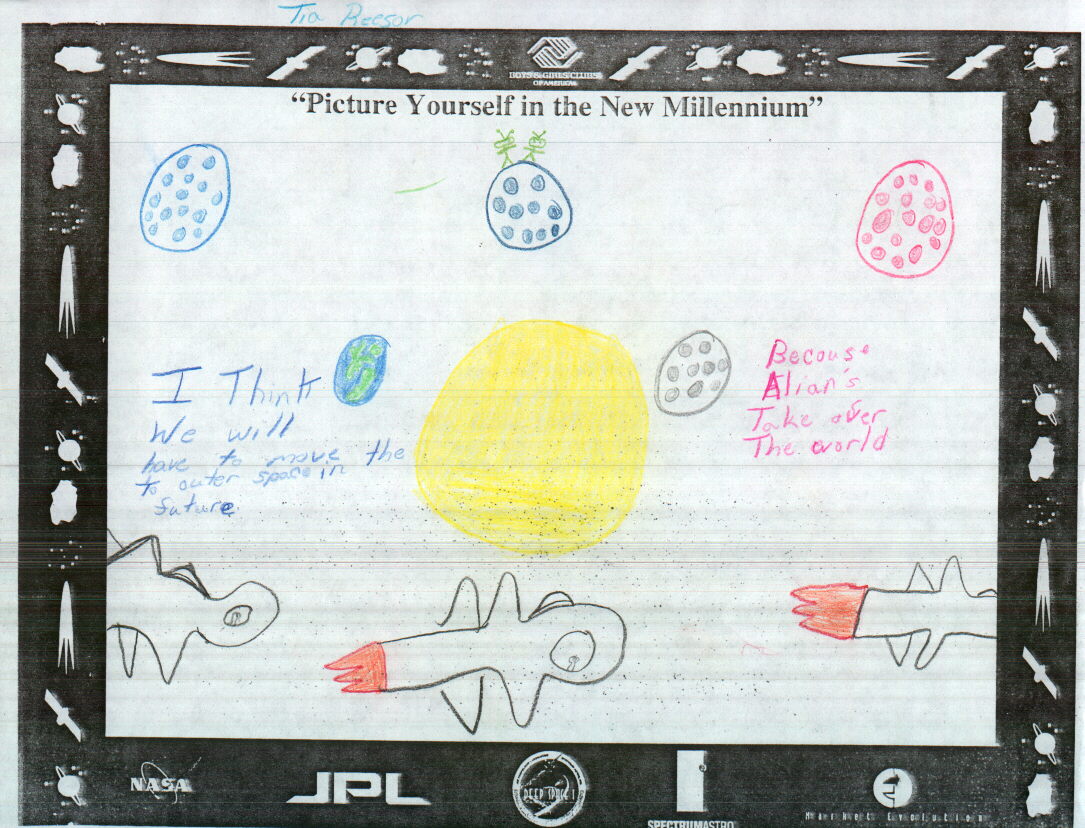 Tia Reesor
BOYS & GIRLS CLUBS
OF AMERICA
“Picture Yourself in the New Millennium”
I Think
We will
have to move the
to outer space in
future
Becouse
Alian's
Take over
The world
NASA
JPL
DEEP SPACE 1
SPECTRUMASTRO
Market Evolution